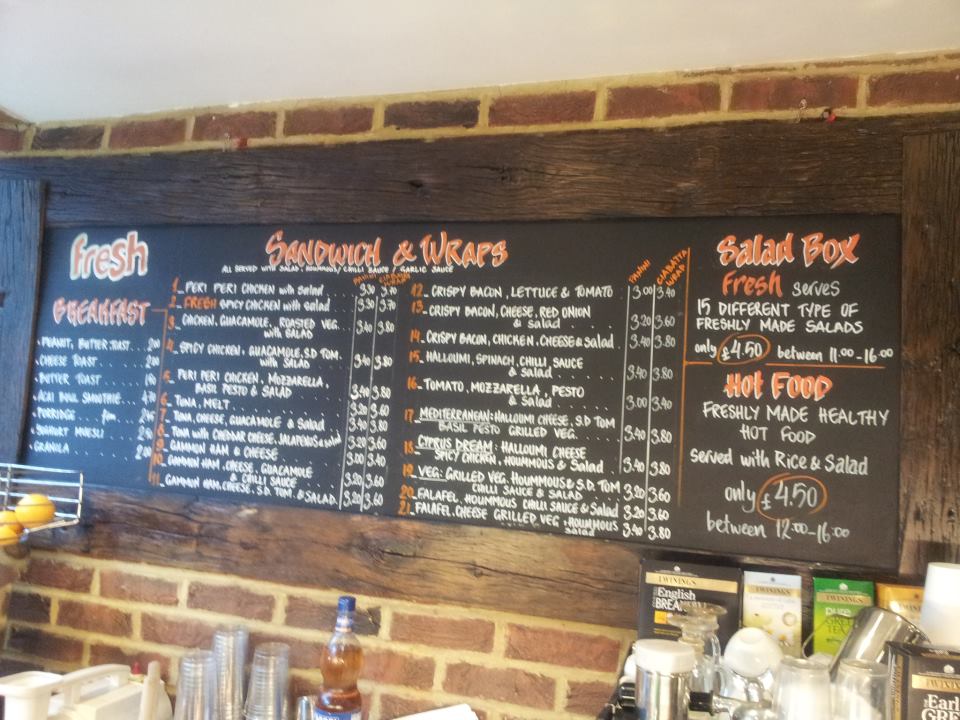 fresh
BREAKFAST
PEANUT, BUTTER TOAST . . 2.00
CHEESE TOAST . . . 2.00
BUTTER TOAST . . . 1.90
ACAI BOWL SMOOTHIE . . 4.70
PORRIDGE . . from 2.45
YOGHURT MUESLI . . 2.90
GRANOLA . . . 2.00
SANDWICH & WRAPS
ALL SERVED WITH SALAD, HOUMMOUS/ CHILLI SAUCE / GARLIC SAUCE
PANINI CIABATTA WRAP
1 PERI PERI CHICKEN with Salad 3.30 3.70
2 FRESH SPICY CHICKEN with Salad 3.30 3.70
3 CHICKEN, GUACAMOLE, ROASTED VEG.
with SALAD 3.40 3.80
4 SPICY CHICKEN, GUACAMOLE, S.D TOM.
with SALAD 3.40 3.80
5 PERI PERI CHICKEN, MOZZARELLA,
BASIL PESTO & SALAD 3.40 3.80
6. TUNA, MELT 3.20 3.60
7. TUNA, CHEESE, GUACAMOLE & Salad 3.40 3.80
8. TUNA with CHEDDAR CHEESE, JALAPENIS & salad 3.20 3.60
9. GAMMON HAM & CHEESE 3.00 3.40
10. GAMMON HAM, CHEESE, GUACAMOLE
& CHILLI SAUCE 3.20 3.60
11. GAMMON HAM, CHEESE, S.D. TOM. & SALAD. 3.20 3.60
PANINI CIABATTA WRAP
12. CRISPY BACON, LETTUCE & TOMATO 3.00 3.40
13. CRISPY BACON, CHEESE, RED ONION
& salad 3.20 3.60
14. CRISPY BACON, CHICKEN, CHEESE & Salad 3.40 3.80
15. HALLOUMI, SPINACH, CHILLI, SAUCE
& salad 3.40 3.80
16. TOMATO, MOZZARELLA, PESTO
& Salad 3.00 3.40
17. MEDITERRANEAN: HALLOUMI CHEESE, S.D TOM
BASIL PESTO GRILLED VEG. 3.40 3.80
18. CYPRUS DREAM: HALLOUMI CHEESE
SPICY CHICKEN, HOUMMOUS & Salad 3.40 3.80
19. VEG: GRILLED VEG, HOUMMOUS & S.D. TOM
CHILLI SAUCE & SALAD 3.20 3.60
20. FALAFEL, HOUMMOUS CHILLI SAUCE & Salad 3.20 3.60
21. FALAFEL, CHEESE GRILLED VEG, HOUMMOUS
salad 3.40 3.80
Salad Box
Fresh serves
15 DIFFERENT TYPE OF
FRESHLY MADE SALADS
only £4.50 between 11:00-16:00
HOT FOOD
FRESHLY MADE HEALTHY
HOT FOOD
served with Rice & Salad
only £4.50
between 12:00-16:00
TWININGS
English
TWININGS
TWININGS
pure
GREEN
TEA
TWININGS
TWININGS